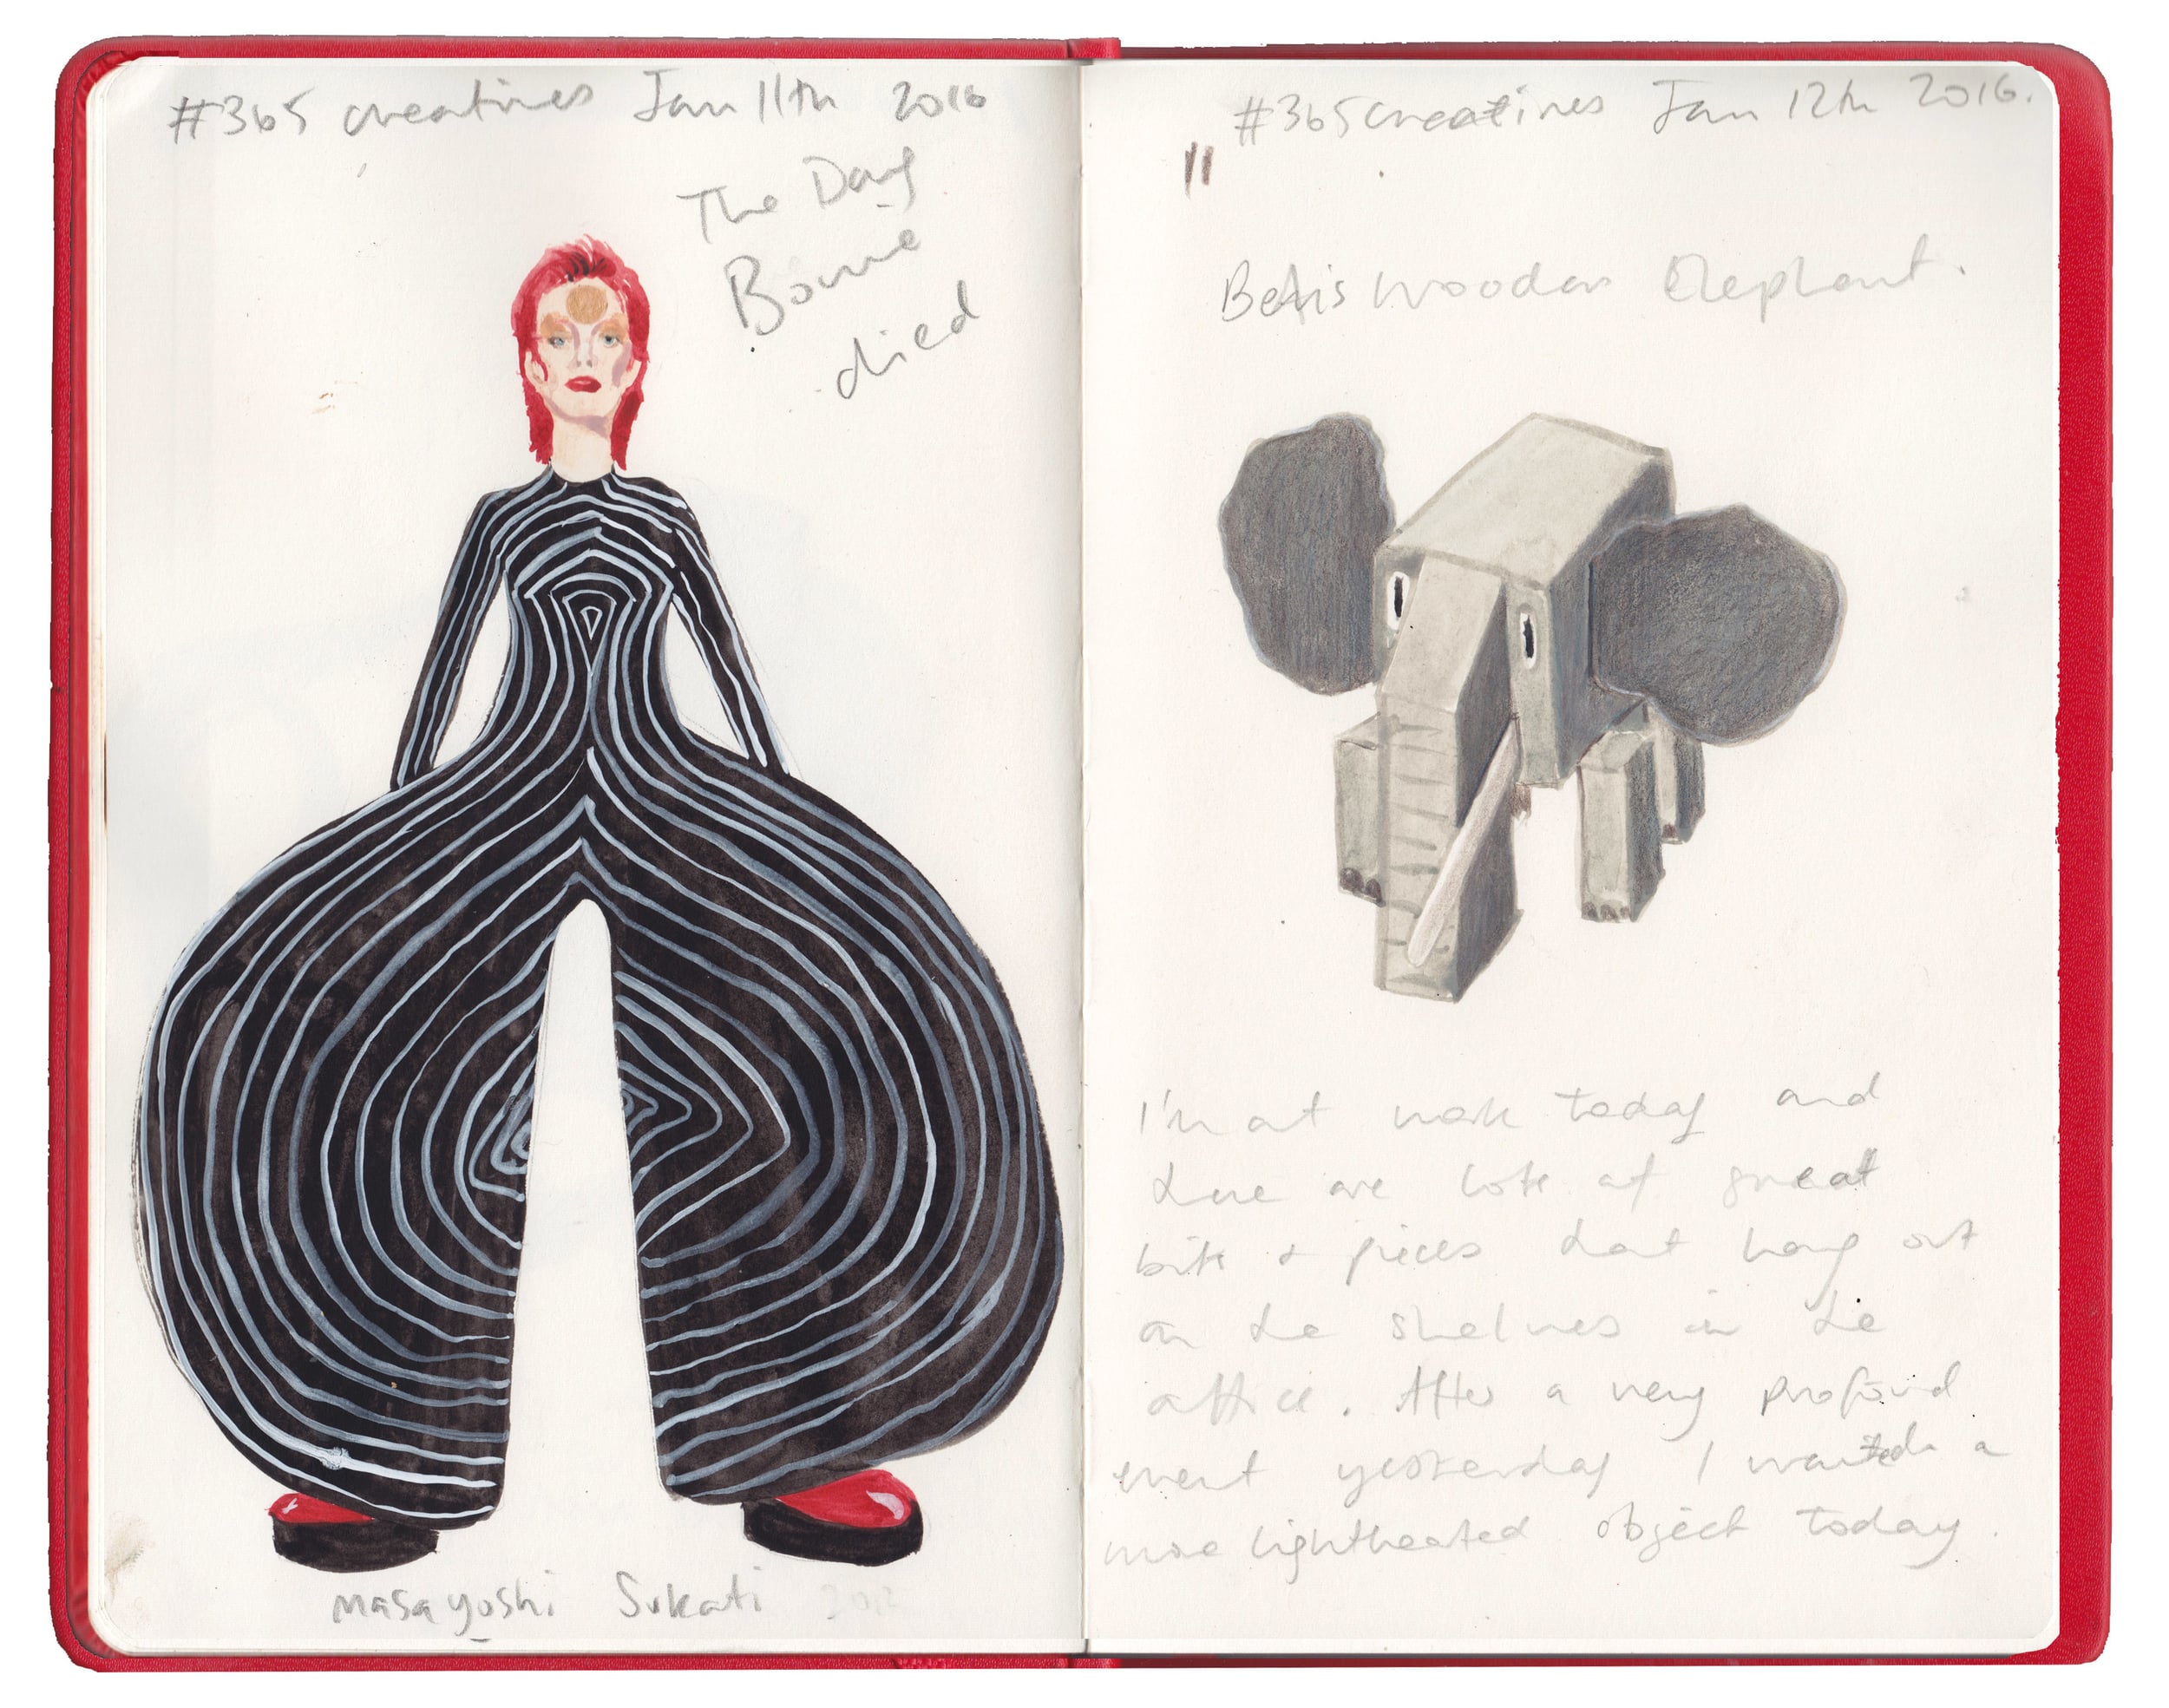 #365 creatives Jan 11th 2016
The Day
Bowie
died
masayoshi Sukati
#365creatives Jan 12th 2016.
11
wooden Elephant.
I'm at work today and
there are lots of great
bits & pieces that hang out
on the shelves in the
office. After a very profound
event yesterday I wanted a
more lighthearted object today.